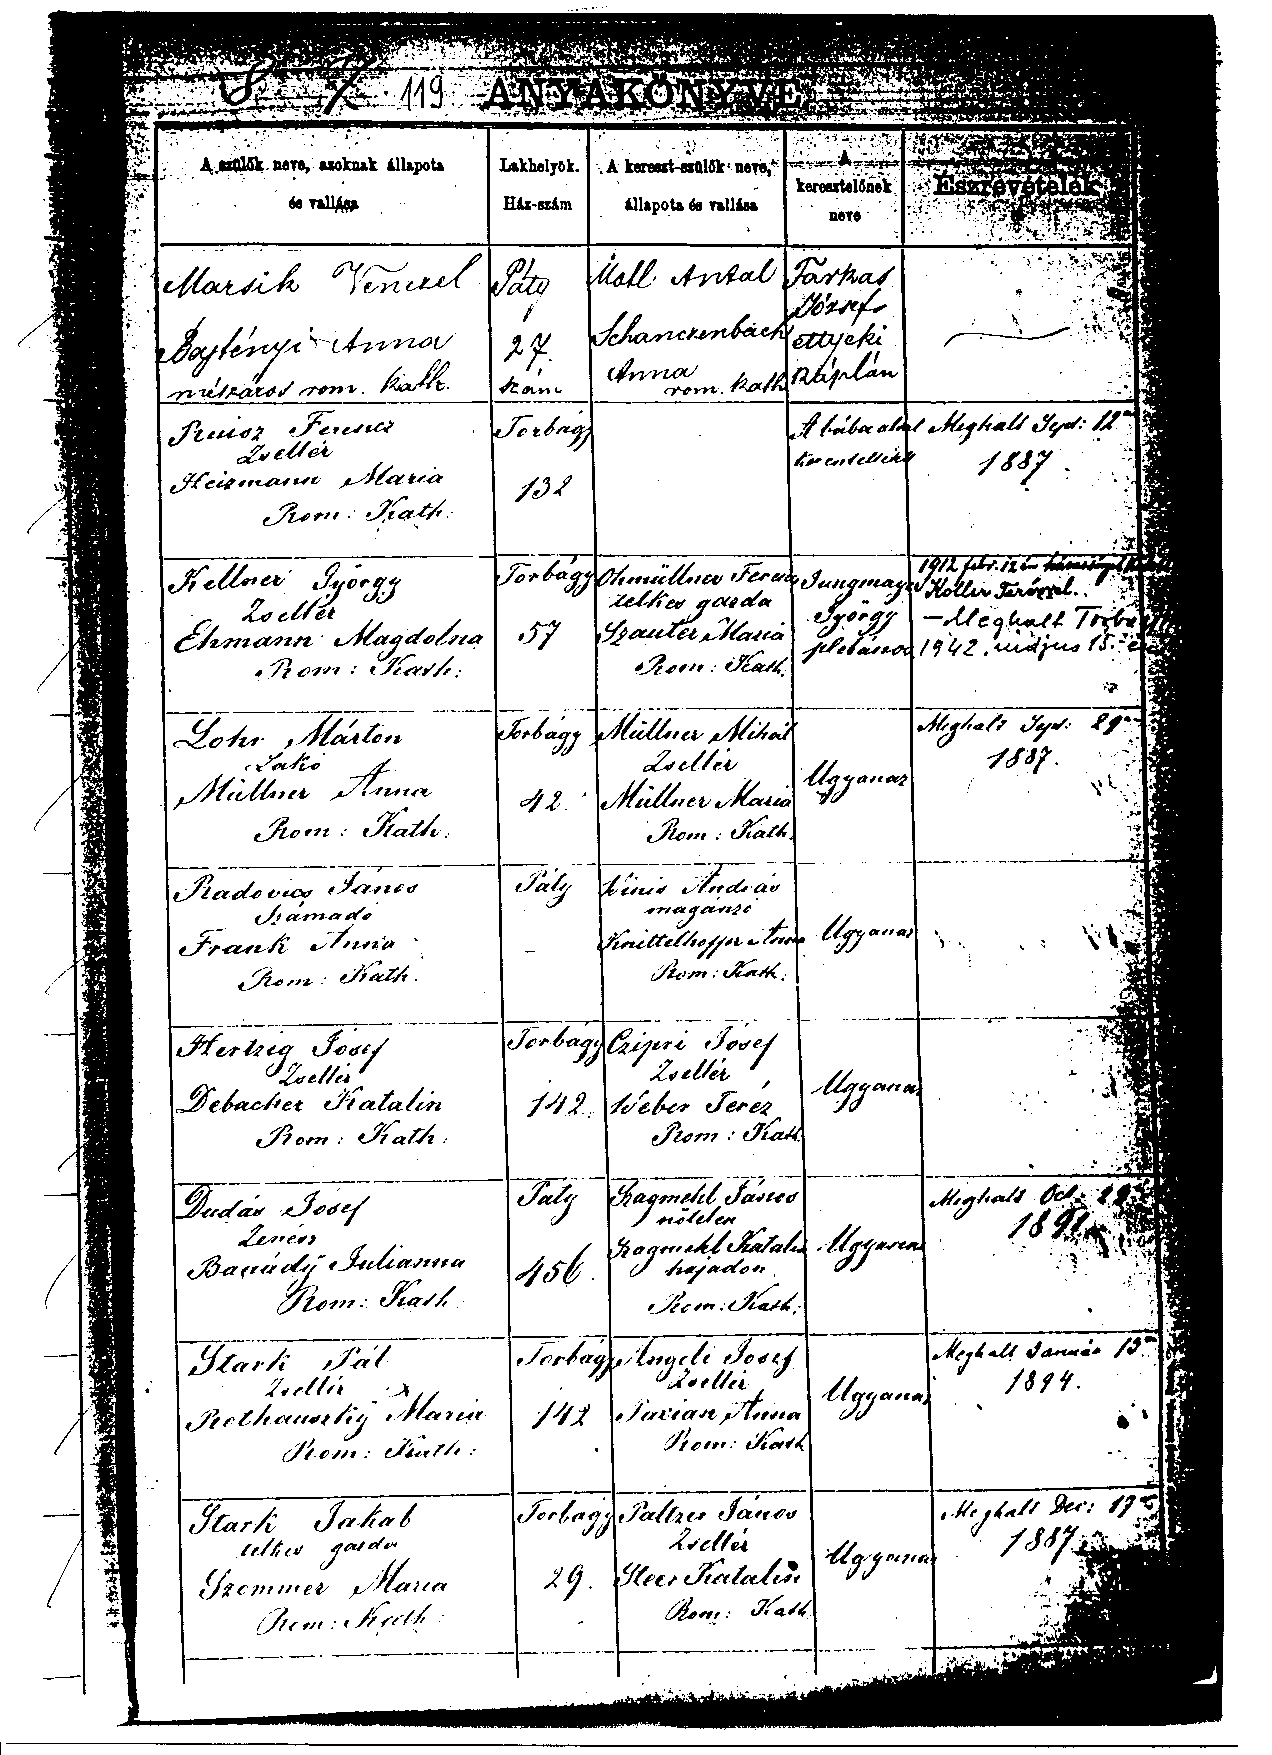 119 ANYAKÖNYVE
A szülők neve, azoknak állapota
és vallása
Lakhelyök.
Ház-szám
A kereszt-szülők neve,
állapota és vallása
A
keresztelőnek
neve
Észrevételek
Marsik Venczel
Anna
mészáros rom. kath.
Páty
27.
szám
Moll Antal
Schanczenbach
Anna
rom. kath.
Farkas
József
ettyeki
káplán
Ferencz
Zsellér
Heizmann Maria
Rom: Kath:
Torbágy
132
A bába által
Meghalt Sept: 12
1887.
Kellner György
Zsellér
Ehmann Magdolna
Rom: Kath:
Torbágy
57
Ohmüllner Ferencz
telkes gazda
Szauter Maria
Rom: Kath:
Jungmayer
György
plebános
1912 febr.
Koller Terézzel.
- Meghalt Torbágy
1942. május 15.-én
Lohr Márton
Lakó
Müllner Anna
Rom: Kath:
Torbágy
42.
Müllner Mihál
Zsellér
Müllner Maria
Rom: Kath:
Ugyanaz
Meghalt Sept: 29
1887.
Radovics János
Számadó
Frank Anna
Rom: Kath:
Páty
-
Vinis András
magánzó
Knittelhoffer Anna
Rom: Kath:
Ugyanaz
Hertzig Jósef
Zsellér
Debacher Katalin
Rom: Kath:
Torbágy
142.
Czipri Jósef
Zsellér
Weber Teréz
Rom: Kath:
Ugyanaz
Dudás Jósef
Zenész
Banády Julianna
Rom: Kath:
Páty
456.
Szagmehl János
nőtelen
Szagmehl Katalin
hajadon
Rom: Kath:
Ugyanaz
Meghalt Oct. 22
Stark Pál
Zsellér
Rothauszky Maria
Rom: Kath:
Torbágy
142
Angeli Josef
Zsellér
Paxian Anna
Rom: Kath:
Ugyanaz
Meghalt Január 13
1894.
Stark Jakab
telkes gazda
Szommer Maria
Rom: Kath:
Torbágy
29.
Paltzer János
Zsellér
Steer Katalin
Rom: Kath:
Ugyanaz
Meghalt Dec: 17
1887.